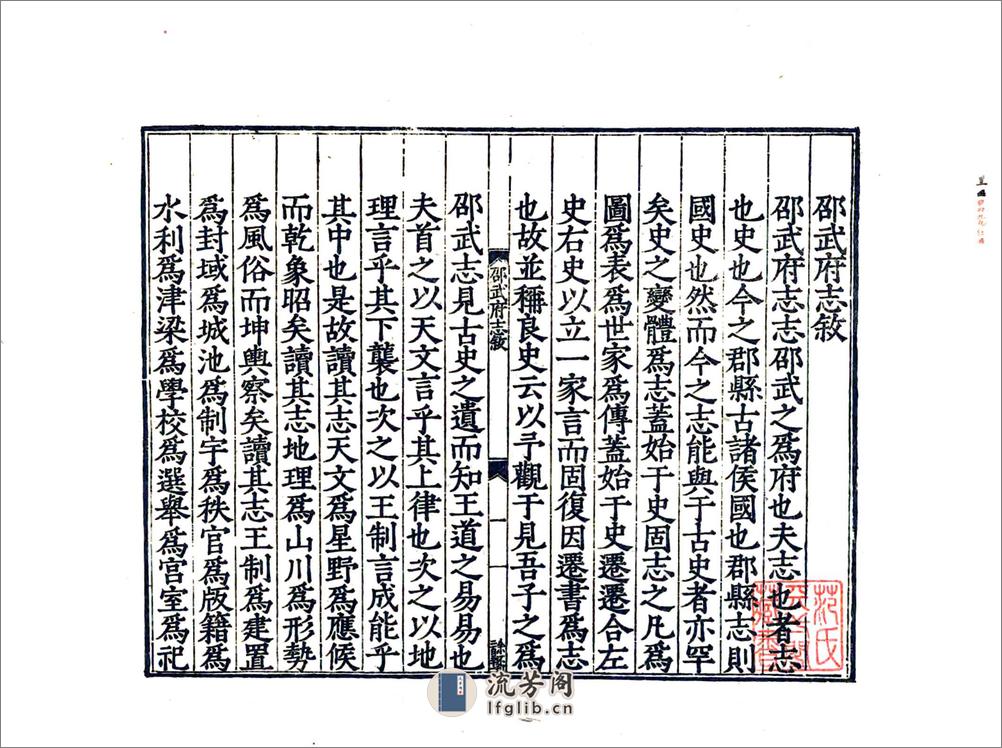 邵武府志敘
邵武府志志邵武之爲府也夫志也者志
也史也今之郡縣古諸侯國也郡縣志則
國史也然而今之志能與于古史者亦罕
矣史之變體爲志蓋始于史固志之凡爲
圖爲表爲世家爲傳蓋始于史遷遷合左
史右史以立一家言而固復因遷書爲志
也故並稱良史云以予觀于見吾子之爲
邵武府志敘
一
邵武志見古史之遺而知王道之易易也
夫首之以天文言乎其上律也次之以地
理言乎其下襲也次之以王制言成能乎
其中也是故讀其志天文爲星野爲應候
而乾象昭矣讀其志地理爲山川爲形勢
爲風俗而坤輿察矣讀其志王制爲建置
爲封域爲城池爲制宇爲秩官爲版籍爲
水利爲津梁爲學校爲選舉爲宮室爲祀
范氏
藏書
流芳阁
lfglib.cn